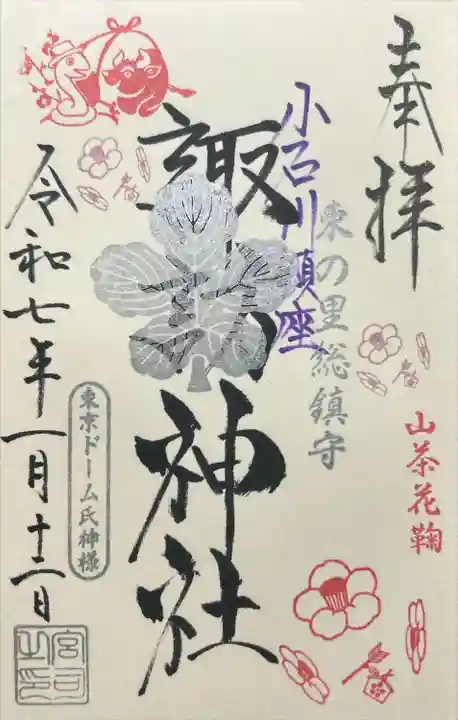 奉拝
山茶花鞠
東の里総鎮守
小石川鎮座
諏訪神社
令和七年一月十二日
東京ドーム氏神様
宮司之印